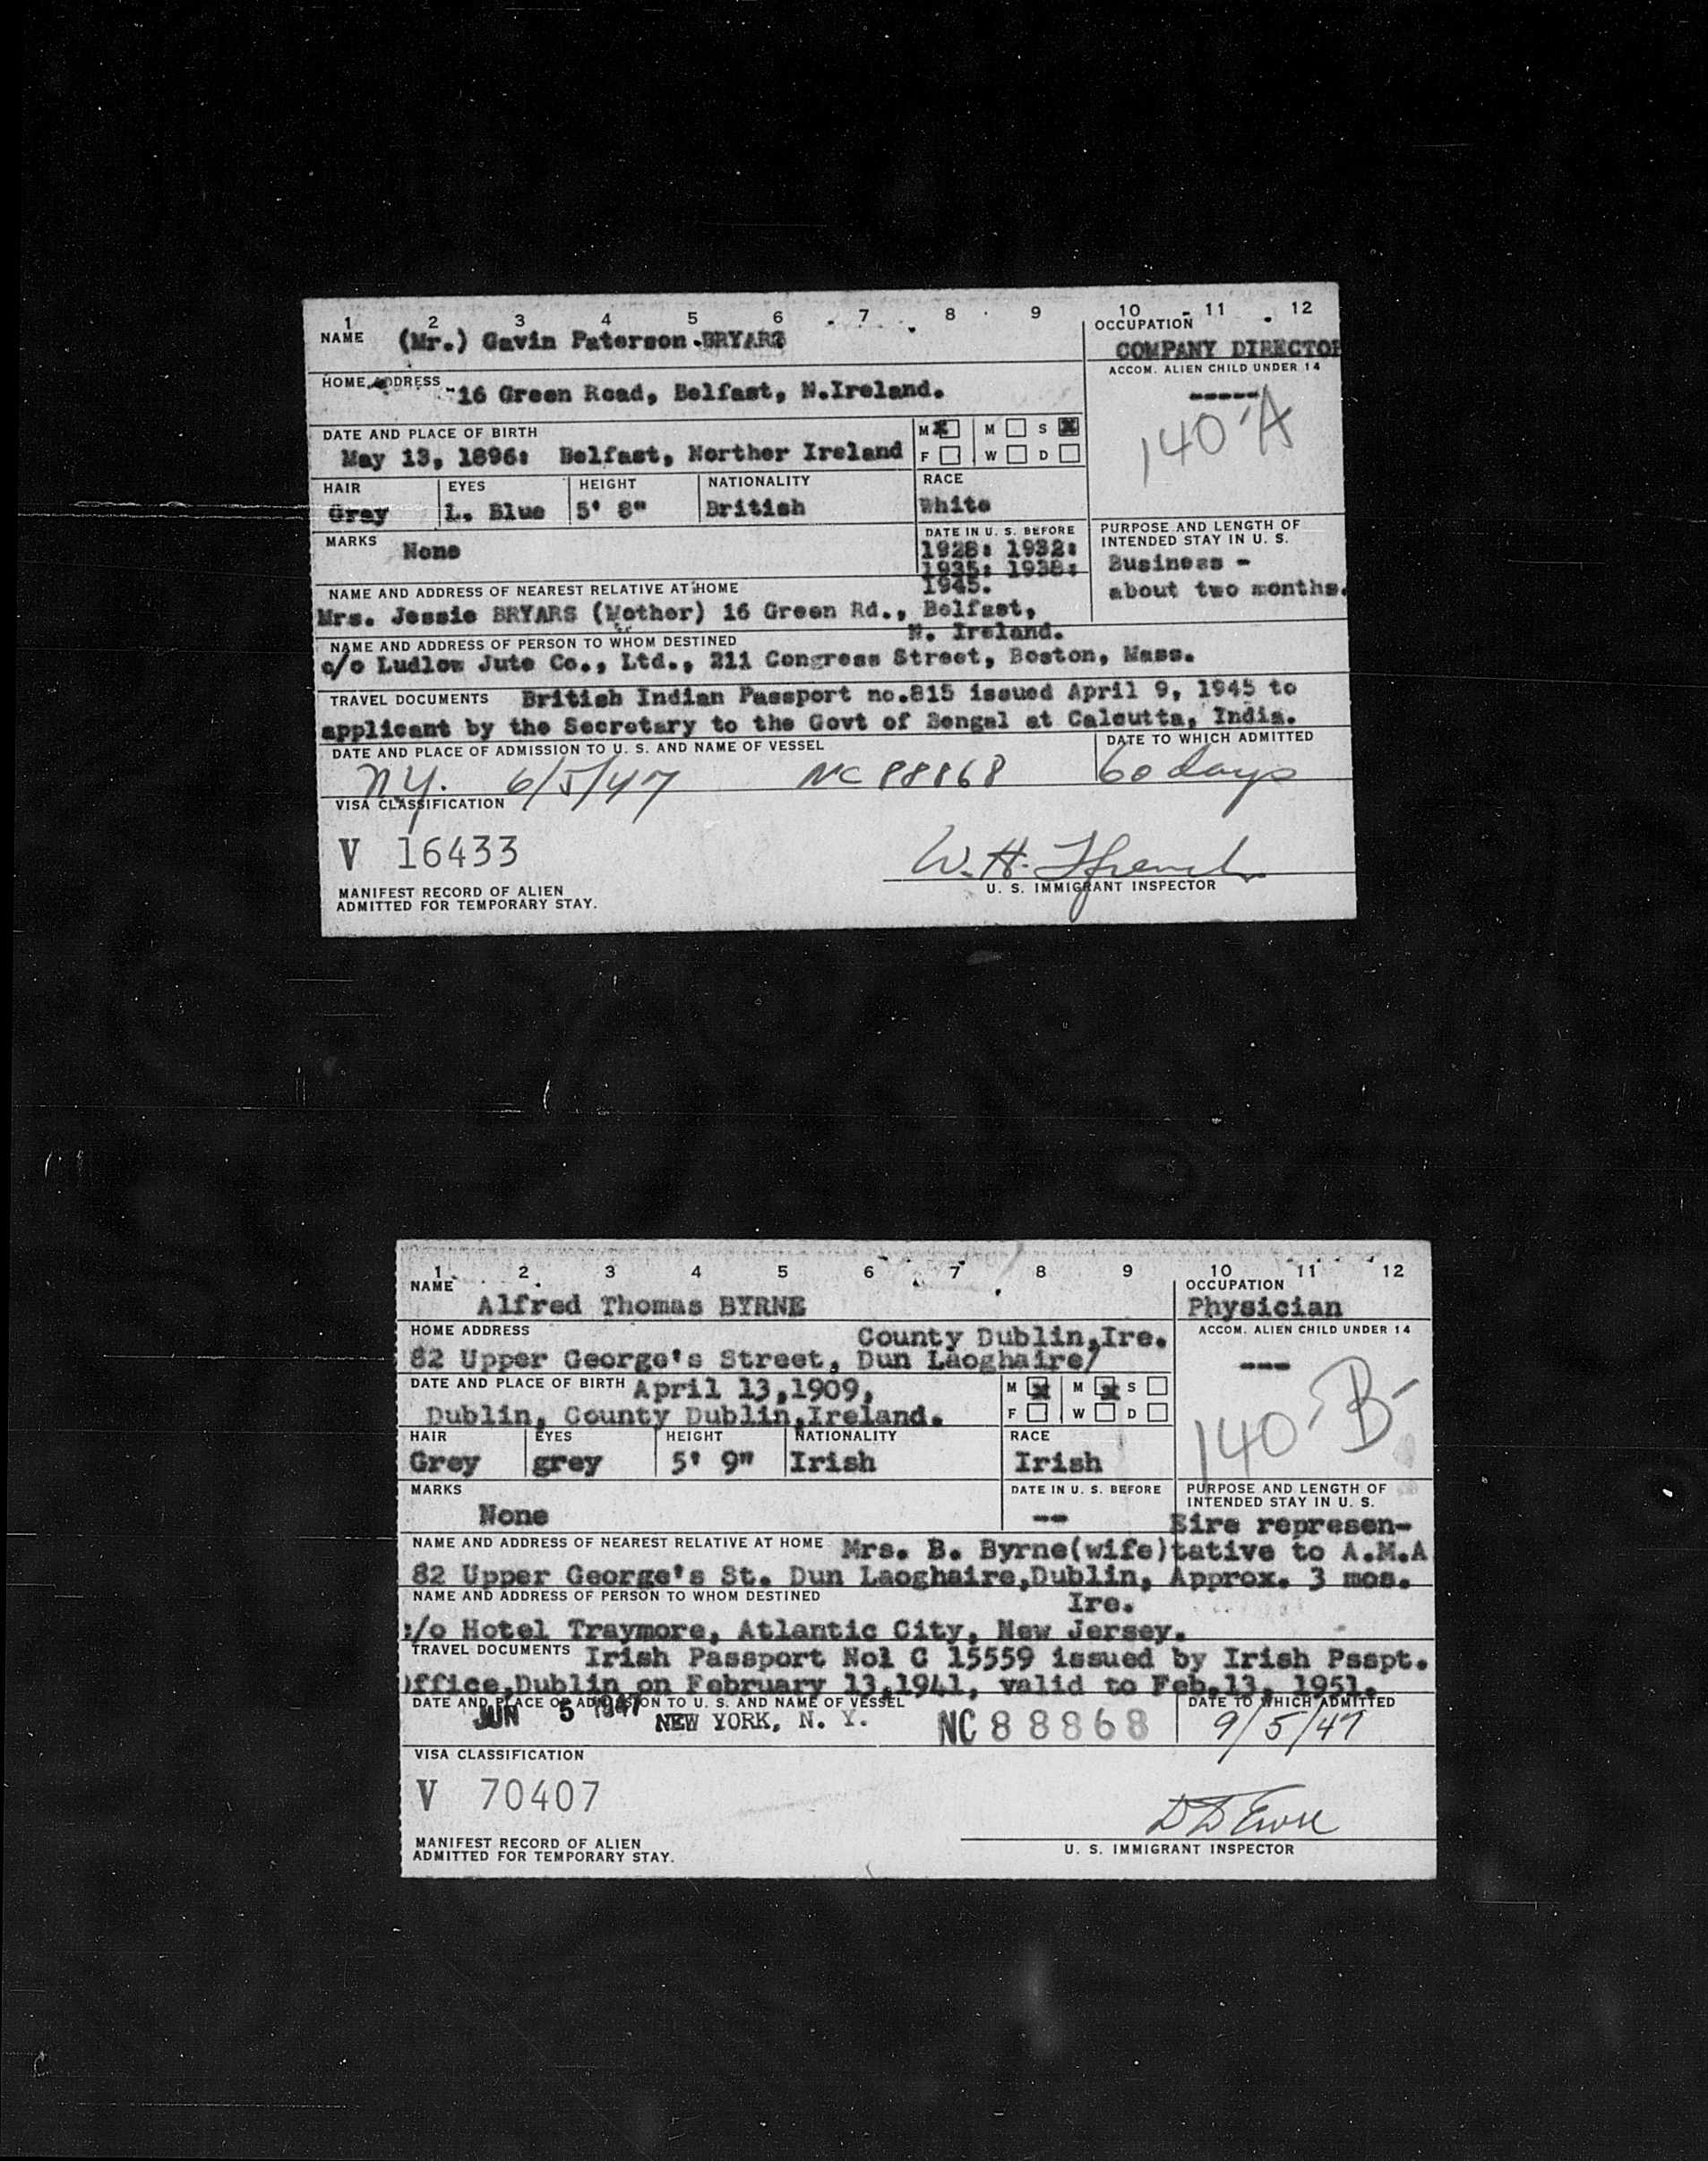 1 2 3 4 5 6 7 8 9 10 11 12
NAME (Mr.) Gavin Paterson BRYARS
OCCUPATION
COMPANY DIRECTOR
HOME ADDRESS 16 Green Road, Belfast, N.Ireland.
ACCOM. ALIEN CHILD UNDER 14
-----
140-A
DATE AND PLACE OF BIRTH
May 13, 1896: Belfast, Norther Ireland
M X M S X
F W D
HAIR EYES HEIGHT NATIONALITY RACE
Gray L. Blue 5' 8" British White
MARKS None
DATE IN U. S. BEFORE
1928: 1932:
1935: 1938:
1945.
PURPOSE AND LENGTH OF
INTENDED STAY IN U. S.
Business -
about two months.
NAME AND ADDRESS OF NEAREST RELATIVE AT HOME
Mrs. Jessie BRYARS (Mother) 16 Green Rd., Belfast,
N. Ireland.
NAME AND ADDRESS OF PERSON TO WHOM DESTINED
c/o Ludlow Jute Co., Ltd., 211 Congress Street, Boston, Mass.
TRAVEL DOCUMENTS British Indian Passport no.815 issued April 9, 1945 to
applicant by the Secretary to the Govt of Bengal at Calcutta, India.
DATE AND PLACE OF ADMISSION TO U. S. AND NAME OF VESSEL
DATE TO WHICH ADMITTED
N.Y. 6/5/47 NC 88868 60 days
VISA CLASSIFICATION
V 16433
W. H. Ffrench
U. S. IMMIGRANT INSPECTOR
MANIFEST RECORD OF ALIEN
ADMITTED FOR TEMPORARY STAY.
1 2 3 4 5 6 7 8 9 10 11 12
NAME
Alfred Thomas BYRNE
OCCUPATION
Physician
HOME ADDRESS County Dublin,Ire.
82 Upper George's Street, Dun Laoghaire/
ACCOM. ALIEN CHILD UNDER 14
---
140-B-
DATE AND PLACE OF BIRTH April 13,1909,
Dublin, County Dublin,Ireland.
M X M X S
F W D
HAIR EYES HEIGHT NATIONALITY RACE
Grey grey 5' 9" Irish Irish
MARKS
None
DATE IN U. S. BEFORE
--
PURPOSE AND LENGTH OF
INTENDED STAY IN U. S.
Eire represen-
tative to A.M.A
Approx. 3 mos.
NAME AND ADDRESS OF NEAREST RELATIVE AT HOME Mrs. B. Byrne(wife)
82 Upper George's St. Dun Laoghaire,Dublin,
Ire.
NAME AND ADDRESS OF PERSON TO WHOM DESTINED
c/o Hotel Traymore, Atlantic City, New Jersey.
TRAVEL DOCUMENTS Irish Passport No1 C 15559 issued by Irish Psspt.
Office,Dublin on February 13,1941, valid to Feb.13, 1951.
DATE AND PLACE OF ADMISSION TO U. S. AND NAME OF VESSEL
DATE TO WHICH ADMITTED
JUN 5 1947 NEW YORK, N. Y. NC 88868 9/5/47
VISA CLASSIFICATION
V 70407
U. S. IMMIGRANT INSPECTOR
MANIFEST RECORD OF ALIEN
ADMITTED FOR TEMPORARY STAY.